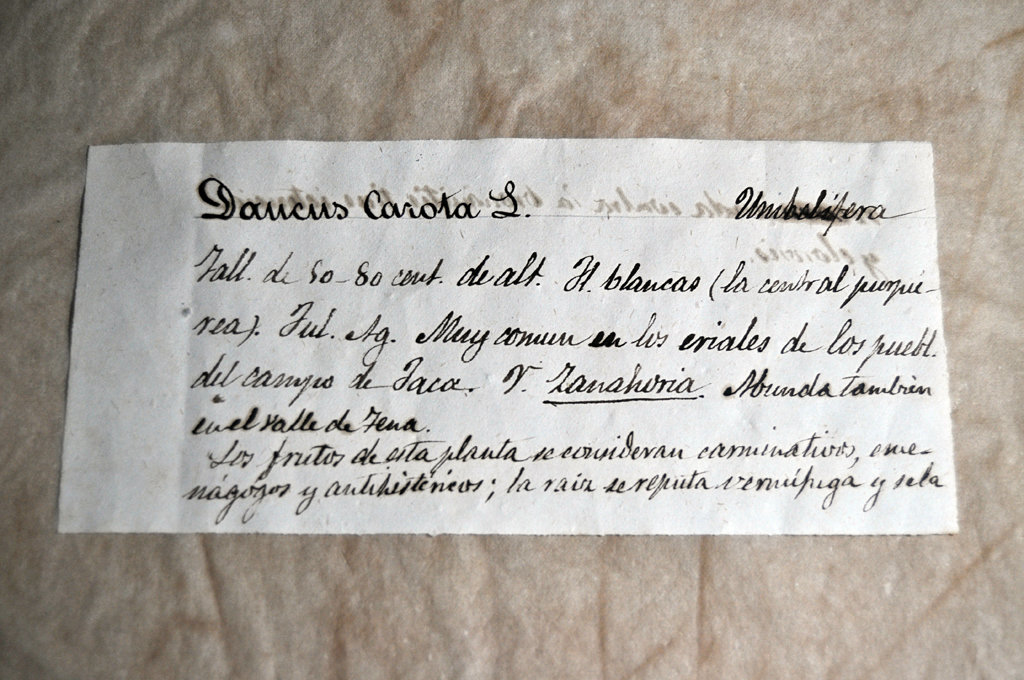 Daucus Carota L. Umbelífera
Tall. de 50-80 cent. de alt. Fl. blancas (la central purpú-
rea). Jul. Ag. Muy comun en los eriales de los puebl.
del campo de Jaca. V. Zanahoria. Abunda también
en el valle de Tena.
Los frutos de esta planta se consideran carminativos, eme-
nágogos y antihistéricos; la raiz se reputa vermífuga y se la